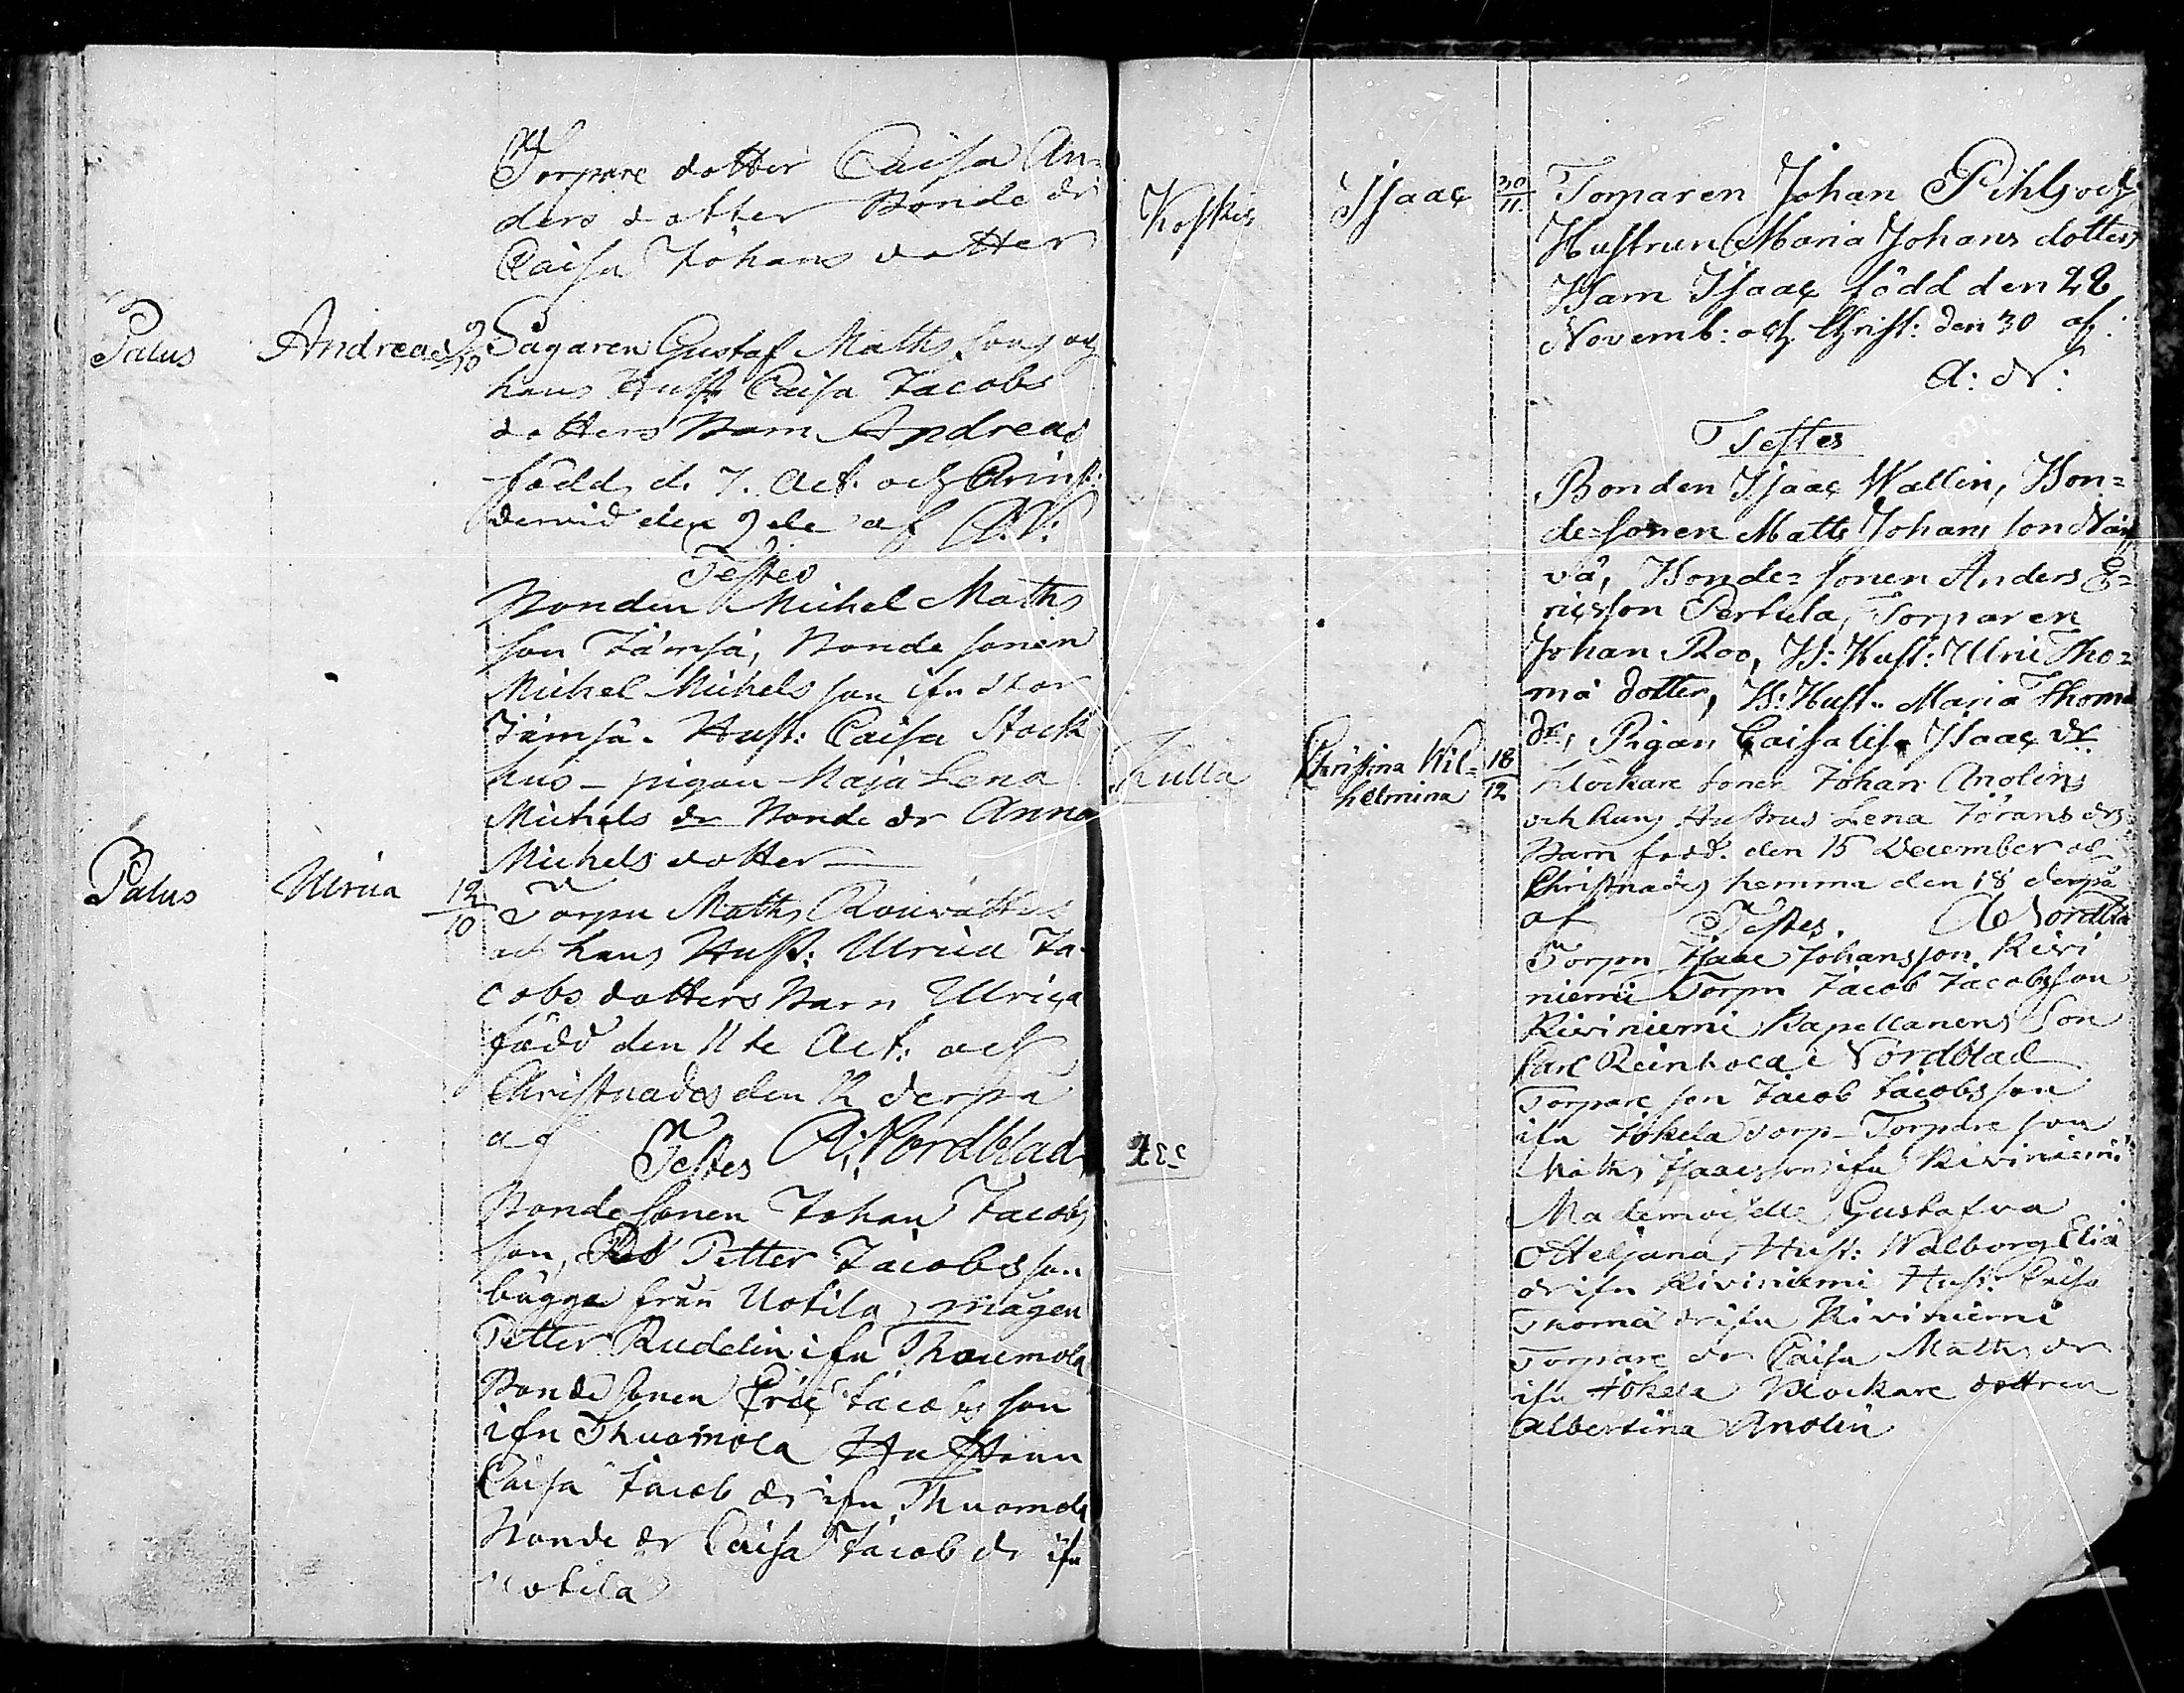 Torpare dotter Caisa An=
ders dotter Bonde dr
Caisa Johans dotter
Palus Andreas 9/10 Sågaren Gustaf Maths son och
hans Hust. Caisa Jacobs
dotters Barn Andreas
född d. 7. Oct. och Christ:
den 9de af A.N:
Testes
Bonden Michel Maths
son Jämsä, Bonde sonen
Michel Michels son ifrn Stor
Jämsä. Hust: Caisa Stock
hus - pigan Maja Lena
Michels dr Bonde dr Anna
Michels dotter
Palus Ulrica 12/10 Torpn Maths
och hans Hust: Ulrica Ja
cobs dotters Barn Ulrica
född den 11te Oct: och
Christnades den 12 derpå
af A: Nordblad
Testes
Bonde sonen Johan Jacobs
son, Petter Jacobsson
bägge från Uotila, mågen
Petter Rudelin ifrn Thuomola
Bonde sonen Eric Jacobs son
ifrn Thuomola Hustrun
Caisa Jacob dr ifrn Thuomola
Bonde dr Caisa Jacob dr ifrn
Uotila
Koskis Isaac 30/11 Torparen Johan Pihls och
Hustrun Maria Johans dotters
Barn Isaac född den 28
Novemb: och Christ: den 30 af:
A: N:
Testes
Bonden Isaac Wallin, Bon=
de-sonen Matts Johans son När
vä, Bonde=sonen Anders E=
ricsson Pertula, Torparen
Johan Roo, B: Hust: Ulric Tho=
mä dotter, B: Hust. Maria Thomä
dr, Pigan Caisalisa Isaac dr
Kulla Christina Wil=helmina 18/12 Klockare sonen Johan Anolins
och hans Hustrus Lena Jörans drs
Barn född. den 15 December och
Christnades hemma den 18 derpå
af Testes. A Nordblad
Torpn Isaac Johansson Kivi
niemi Torpn Jacob Jacobsson
Kiviniemi Kapellanens Son
Carl Reinhold Nordblad
Torpare son Jacob Jacobsson
ifrn Jokela torp - Torpare son
Maths Isaacsson ifrn Kiviniemi
Mademoiselle Gustafva
Otteljana, Hust: Walborg Eliä
dr ifrn Kiviniemi Hust: Caisa
Thomä dr ifrn Kiviniemi
Torpare dr Caisa Maths dr
ifrn Jokela Klockare dottren
Albertina Anolin